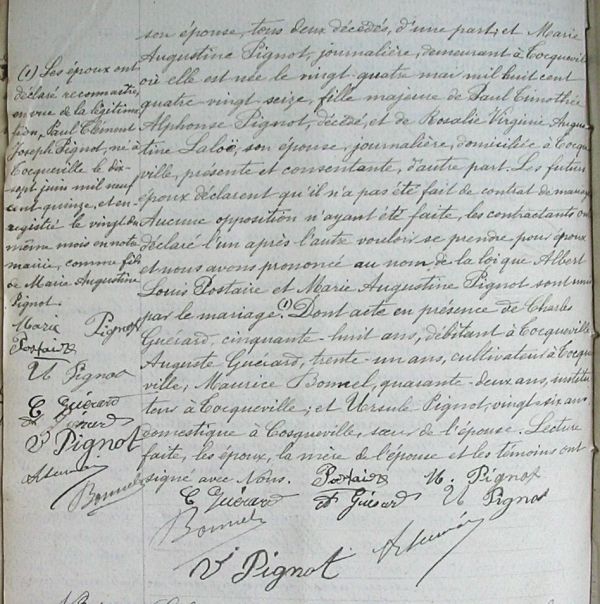 son épouse, tous deux décédés, d'une part; et Marie
Augustine Pignot, journalière, demeurant à Cocquevill
où elle est née le vingt quatre mai mil huit cent
quatre vingt seize, fille majeure de Paul Timothée
Alphonse Pignot, décédé, et de Rosalie Virginie Augus
tine Laloë, son épouse, journalière, domiciliée à Cocq
ville, présente et consentante, d'autre part. Les futurs
époux déclarent qu'il n'a pas été fait de contrat de mariage
Aucune opposition n'ayant été faite, les contractants ont
déclaré l'un après l'autre vouloir se prendre pour époux
et nous avons prononcé au nom de la loi que Albert
Louis Postaire et Marie Augustine Pignot sont unis
par le mariage. (1) Dont acte en présence de Charles
Guérard, cinquante-huit ans, débitant à Cocqueville
Auguste Guérard, trente-un ans, cultivateur à Cocque
ville; Maurice Bonnel, quarante-deux ans, institu
teur à Cocqueville; et Ursule Pignot, vingt-six ans
domestique à Cosqueville, sœur de l'épouse. Lecture
faite, les époux, la mère de l'épouse et les témoins ont
signé avec Nous.
Postaire M. Pignot
C Guérard A Guérard U Pignot
Bonnel
V Pignot
(1) Les époux ont
déclaré reconnaître,
en vue de la légitima
tion, Paul Clément
Joseph Pignot, né à
Cocqueville le dix
sept juin mil neuf
cent quinze, et en-
registré le vingt du
même mois en notre
mairie, comme fils
de Marie Augustine
Pignot.
Marie Pignot
Postaire
U Pignot
C Guérard
V Pignot
Bonnel